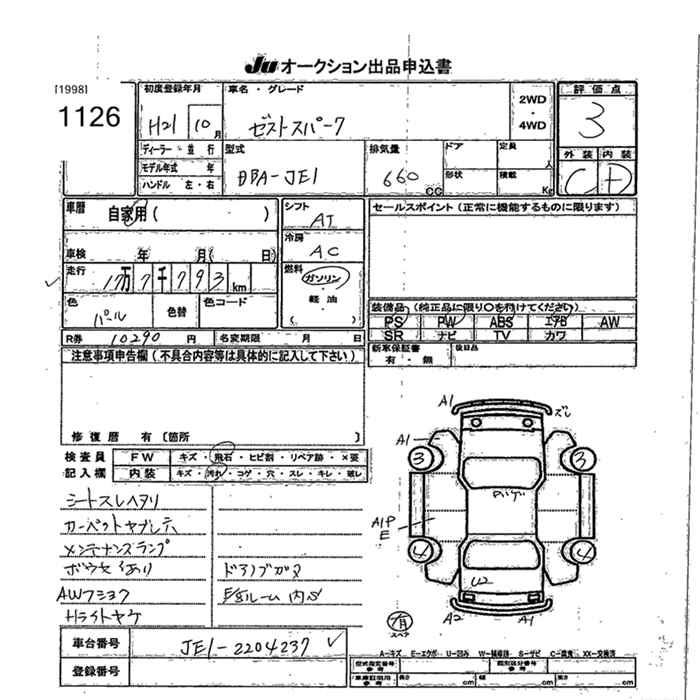 JU オークション出品申込書
[1998]
1126
初度登録年月
H21 10月
車名・グレード
ゼストスパーク
2WD・4WD
評価点
3
ディーラー 並行
モデル年式 年
ハンドル 左・右
型式
DBA-JE1
排気量
660 CC
ドア
形状
定員 人
積載 Kg
外装 内装
C D
車歴
自家用 ( )
車検 年 月( 日)
シフト
AT
冷房
AC
セールスポイント (正常に機能するものに限ります)
走行
17万7千793km
燃料
ガソリン
・
軽油
( )
色
パール
色替
色コード
R券 10290 円
名変期限 月 日
装備品 (純正品に限り○を付けてください)
PS PW ABS エアB AW
SR ナビ TV カワ
新車保証書
有・無
後日品
注意事項申告欄 (不具合内容等は具体的に記入して下さい)
修復歴 有 〔箇所 〕
検査員
記入欄
FW キズ・飛石・ヒビ割・リペア跡・×要
内装 キズ・汚れ・コゲ・穴・スレ・キレ・破レ
シートスレヘタリ
カーペットヤブレ
メンテナンスランプ
AWフショク
Hライトヤケ
A1
ズレ
A1
3
3
A1P
E
4
4
U2
A2
A1
スペア
車台番号 JE1-2204237
登録番号
A-キズ E-エクボ U-凹み W-補修跡 S-サビ C-腐食 XX-交換済
型式指定番号
参考
類別区分番号
参考
車庫証明用
参考
長さ cm
幅 cm
高さ cm